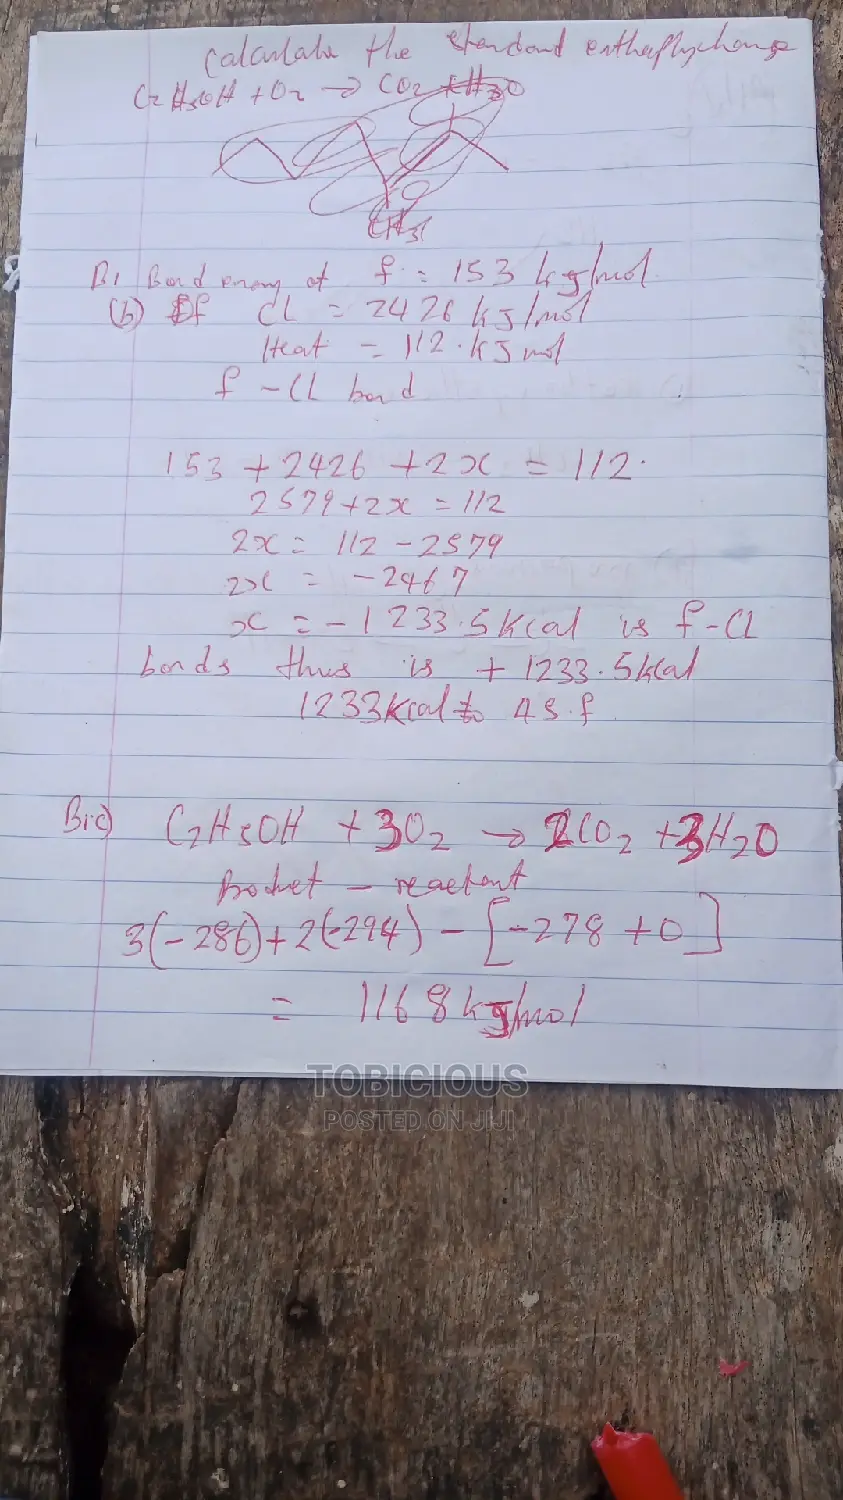 Calculate the standard enthaplychange
C2H5OH + O2 → CO2 + H2O
CH3
B1 Bond energy of f = 153 kg/mol
(b) Of CL = 2426 kJ/mol
Heat = 112.kJ mol
f - CL bond
153 + 2426 + 2x = 112.
2579 + 2x = 112
2x = 112 - 2579
2x = - 2467
x = - 1233.5kcal is f-CL
bonds thus is + 1233.5kcal
1233kcal to 4s.f
B1c) C2H5OH + 3O2 → 2CO2 + 3H2O
Product - reactant
3(-286) + 2(-294) - [-278 + 0]
= 1168kg/mol
TOBICIOUS
POSTED ON JIJI